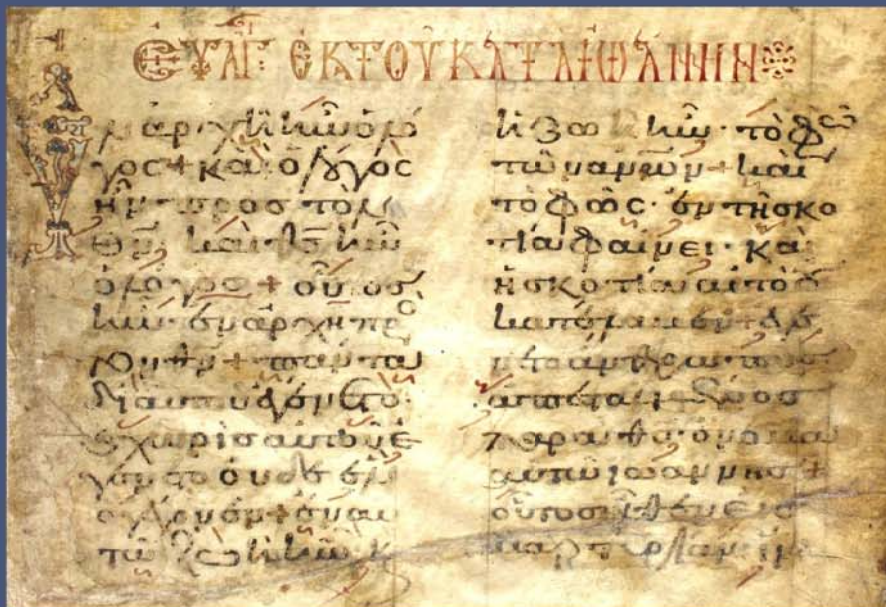 ΕΥΑΓ ΕΚ ΤΟΥ ΚΑΤΑ ΙΩΑΝΝΗΝ
ἀρχῆ ἦν ὁ λό
γος + καὶ ὁ λόγος
ἦν πρὸς τὸν
θν̅ καὶ θς̅ ἦν
ὁ λόγος + οὗτος
ἦν ἐν ἀρχῆ πρὸ
θν + πάντα
δι αὐτοῦ ἐγένετο
χωρὶς αὐτοῦ ἐ
γένετο οὐδὲ ἓν
ὃ γέγονεν + ἐν αὐ
τῶ ζωὴ ἦν κ
ἡ ζωὴ ἦν τὸ φῶ
τῶν ανων + καὶ
τὸ φῶς ἐν τῆ σκο
τία φαίνει καὶ
ἡ σκοτία αὐτὸ οὐ
κατέλαβεν + ἐγέ
νετο ἄνθρωπος
παρὰ ὄνομα
αὐτῶ ἰωάννης +
οὗτος ἦλθεν εἰς
μαρτυρίαν ἵνα